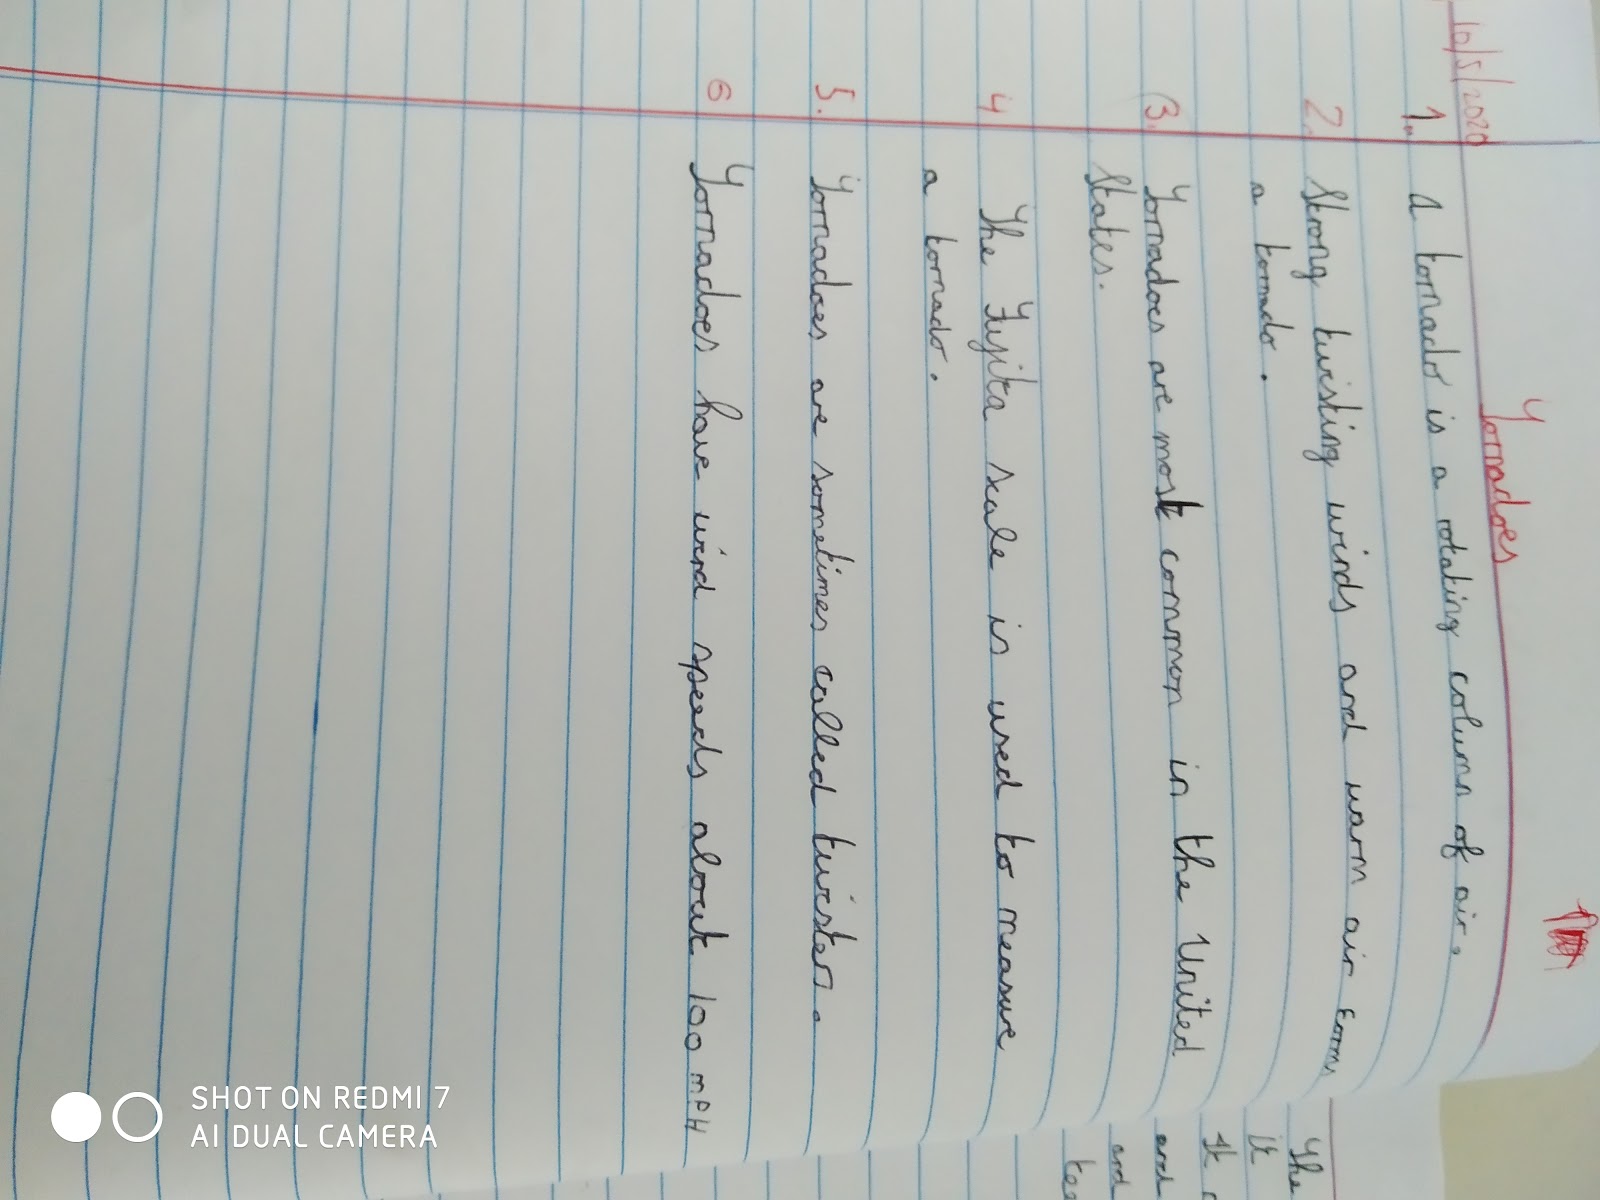 10/5/2020
Tornadoes
1. A tornado is a rotating column of air.
2. Strong twisting winds and warm air forms
a tornado.
3. Tornadoes are most common in the United
States.
4 The Fujita scale is used to measure
a tornado.
5. Tornadoes are sometimes called twisters.
6 Tornadoes have wind speeds about 100 mPH
The
it
It
and
and
SHOT ON REDMI 7
AI DUAL CAMERA